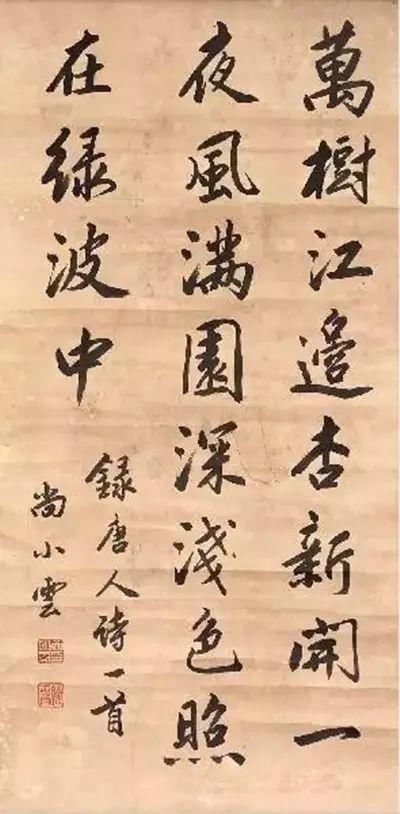 萬樹江邊杏新開一
夜風滿園深淺色照
在緑波中
録唐人诗一首
尚小雲